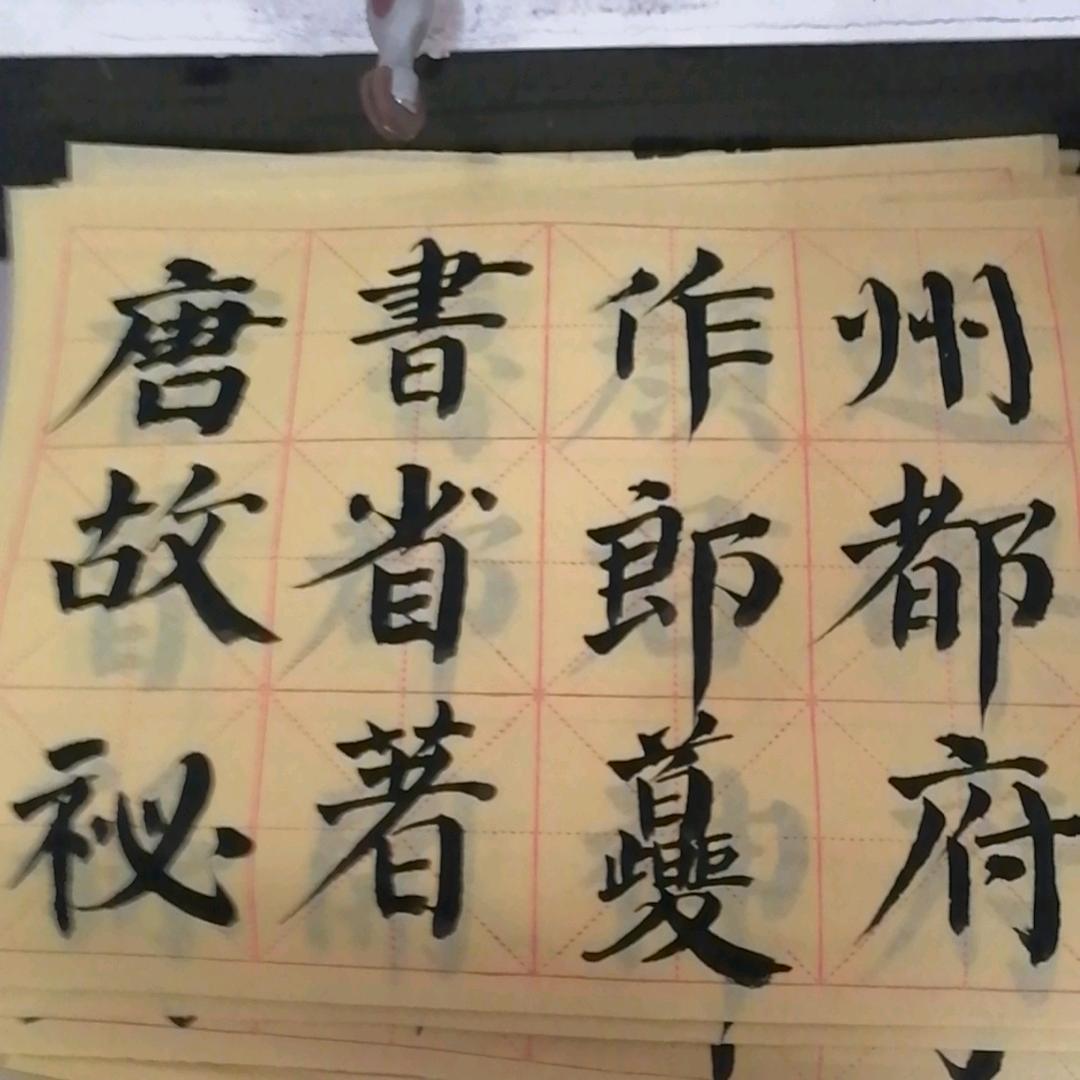 唐故祕
書省著
作郎蘷
州都府